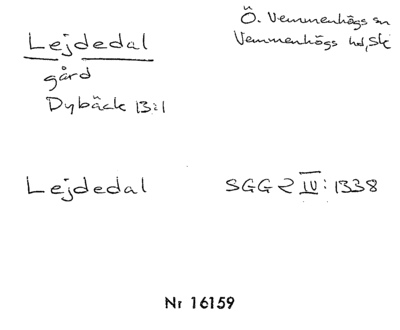 Lejdedal
gård
Dybäck 13:1
Ö. Vemmenhögs sn
Vemmenhögs hd, Sk
Lejdedal
SGG 2 IV: 1338
Nr 16159